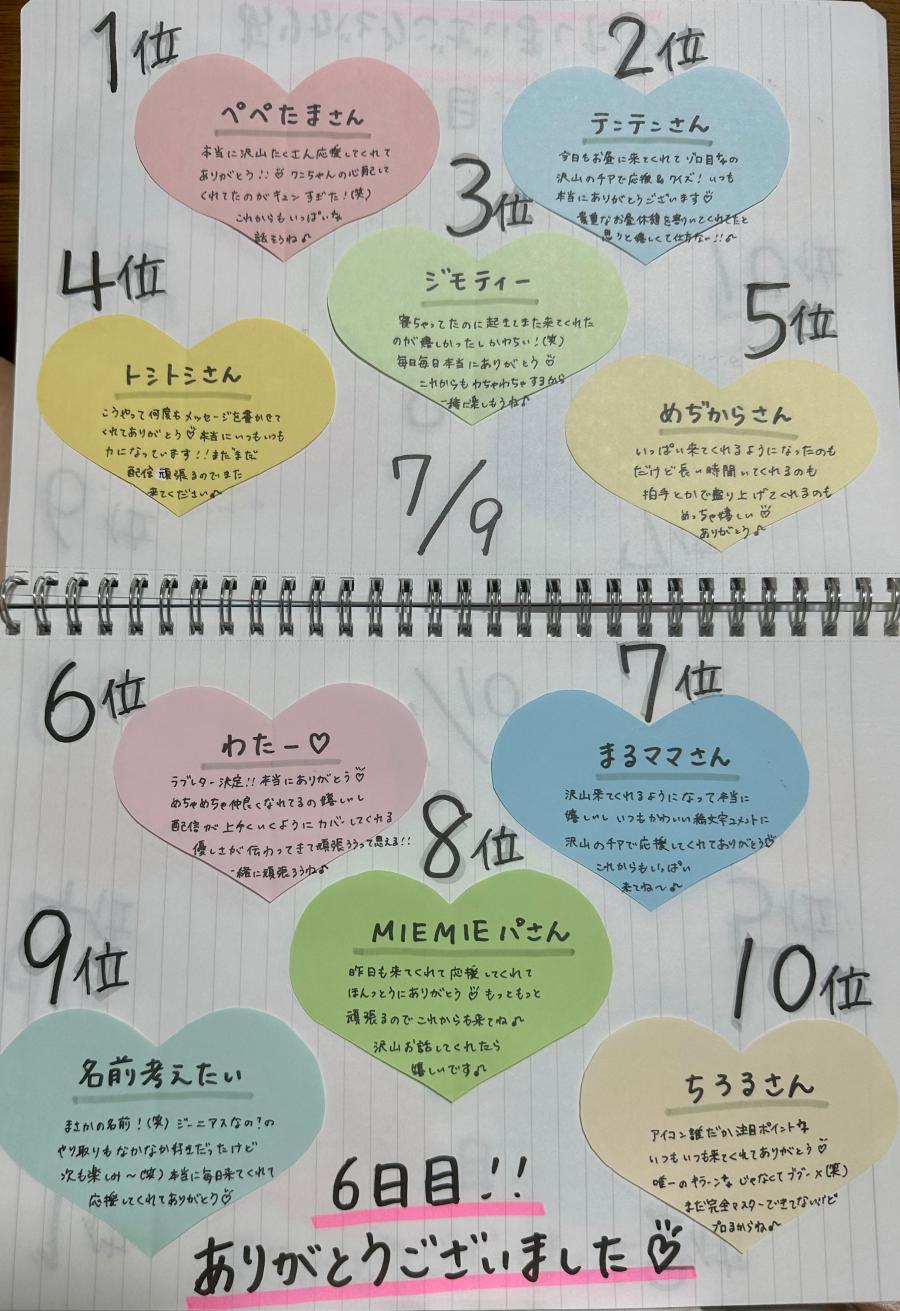 1位
ペペたまさん
本当に沢山たくさん応援してくれて
ありがとう!!♡クニちゃんの心配して
くれてたのがキュンすぎた!(笑)
これからもいっぱい
話そうね♪
2位
テンテンさん
今日もお昼に来てくれてゾロ目なの
沢山のチアで応援&クイズ!いつも
本当にありがとうございます♡
貴重なお昼休憩を割いてくれてたと
思うと嬉しくて仕方ない!!♪
3位
ジモティー
寝ちゃってたのに起きてまた来てくれた
のが嬉しかったしかわちい!(笑)
毎日毎日本当にありがとう♡
これからもわちゃわちゃするから
一緒に楽しもうね♪
4位
トシトシさん
こうやって何度もメッセージを書かせて
くれてありがとう♡本当にいつもいつも
力になっています!!まだまだ
配信頑張るのでまた
来てください♪
5位
めぢからさん
いっぱい来てくれるようになったのも
だけど長い時間いてくれるのも
拍手とかで盛り上げてくれるのも
めっちゃ嬉しい♡
ありがとう♪
7/9
6位
わたー♡
ラブレター決定!!本当にありがとう♡
めちゃめちゃ仲良くなれてるの嬉しいし
配信が上手くいくようにカバーしてくれる
優しさが伝わってきて頑張ろうって思える!!
一緒に頑張ろうね♪
7位
まるママさん
沢山来てくれるようになって本当に
嬉しいし いつもかわいい絵文字コメントに
沢山のチアで応援してくれてありがとう♡
これからもいっぱい
来てね〜♪
8位
MIEMIEパさん
昨日も来てくれて応援してくれて
ほんっとうにありがとう♡もっともっと
頑張るのでこれからも来てね♪
沢山お話してくれたら
嬉しいです♪
9位
名前考えたい
まさかの名前!(笑)ジーニアスなの?の
やり取りもなかなか好きだったけど
次も楽しみ〜(笑)本当に毎日来てくれて
応援してくれてありがとう♡
10位
ちろるさん
アイコン誰だか注目ポイント
いつもいつも来てくれてありがとう♡
唯一の じゃなくてブブー×(笑)
まだ完全マスターできてないけど
プロるからね♪
6日目!!
ありがとうございました♡